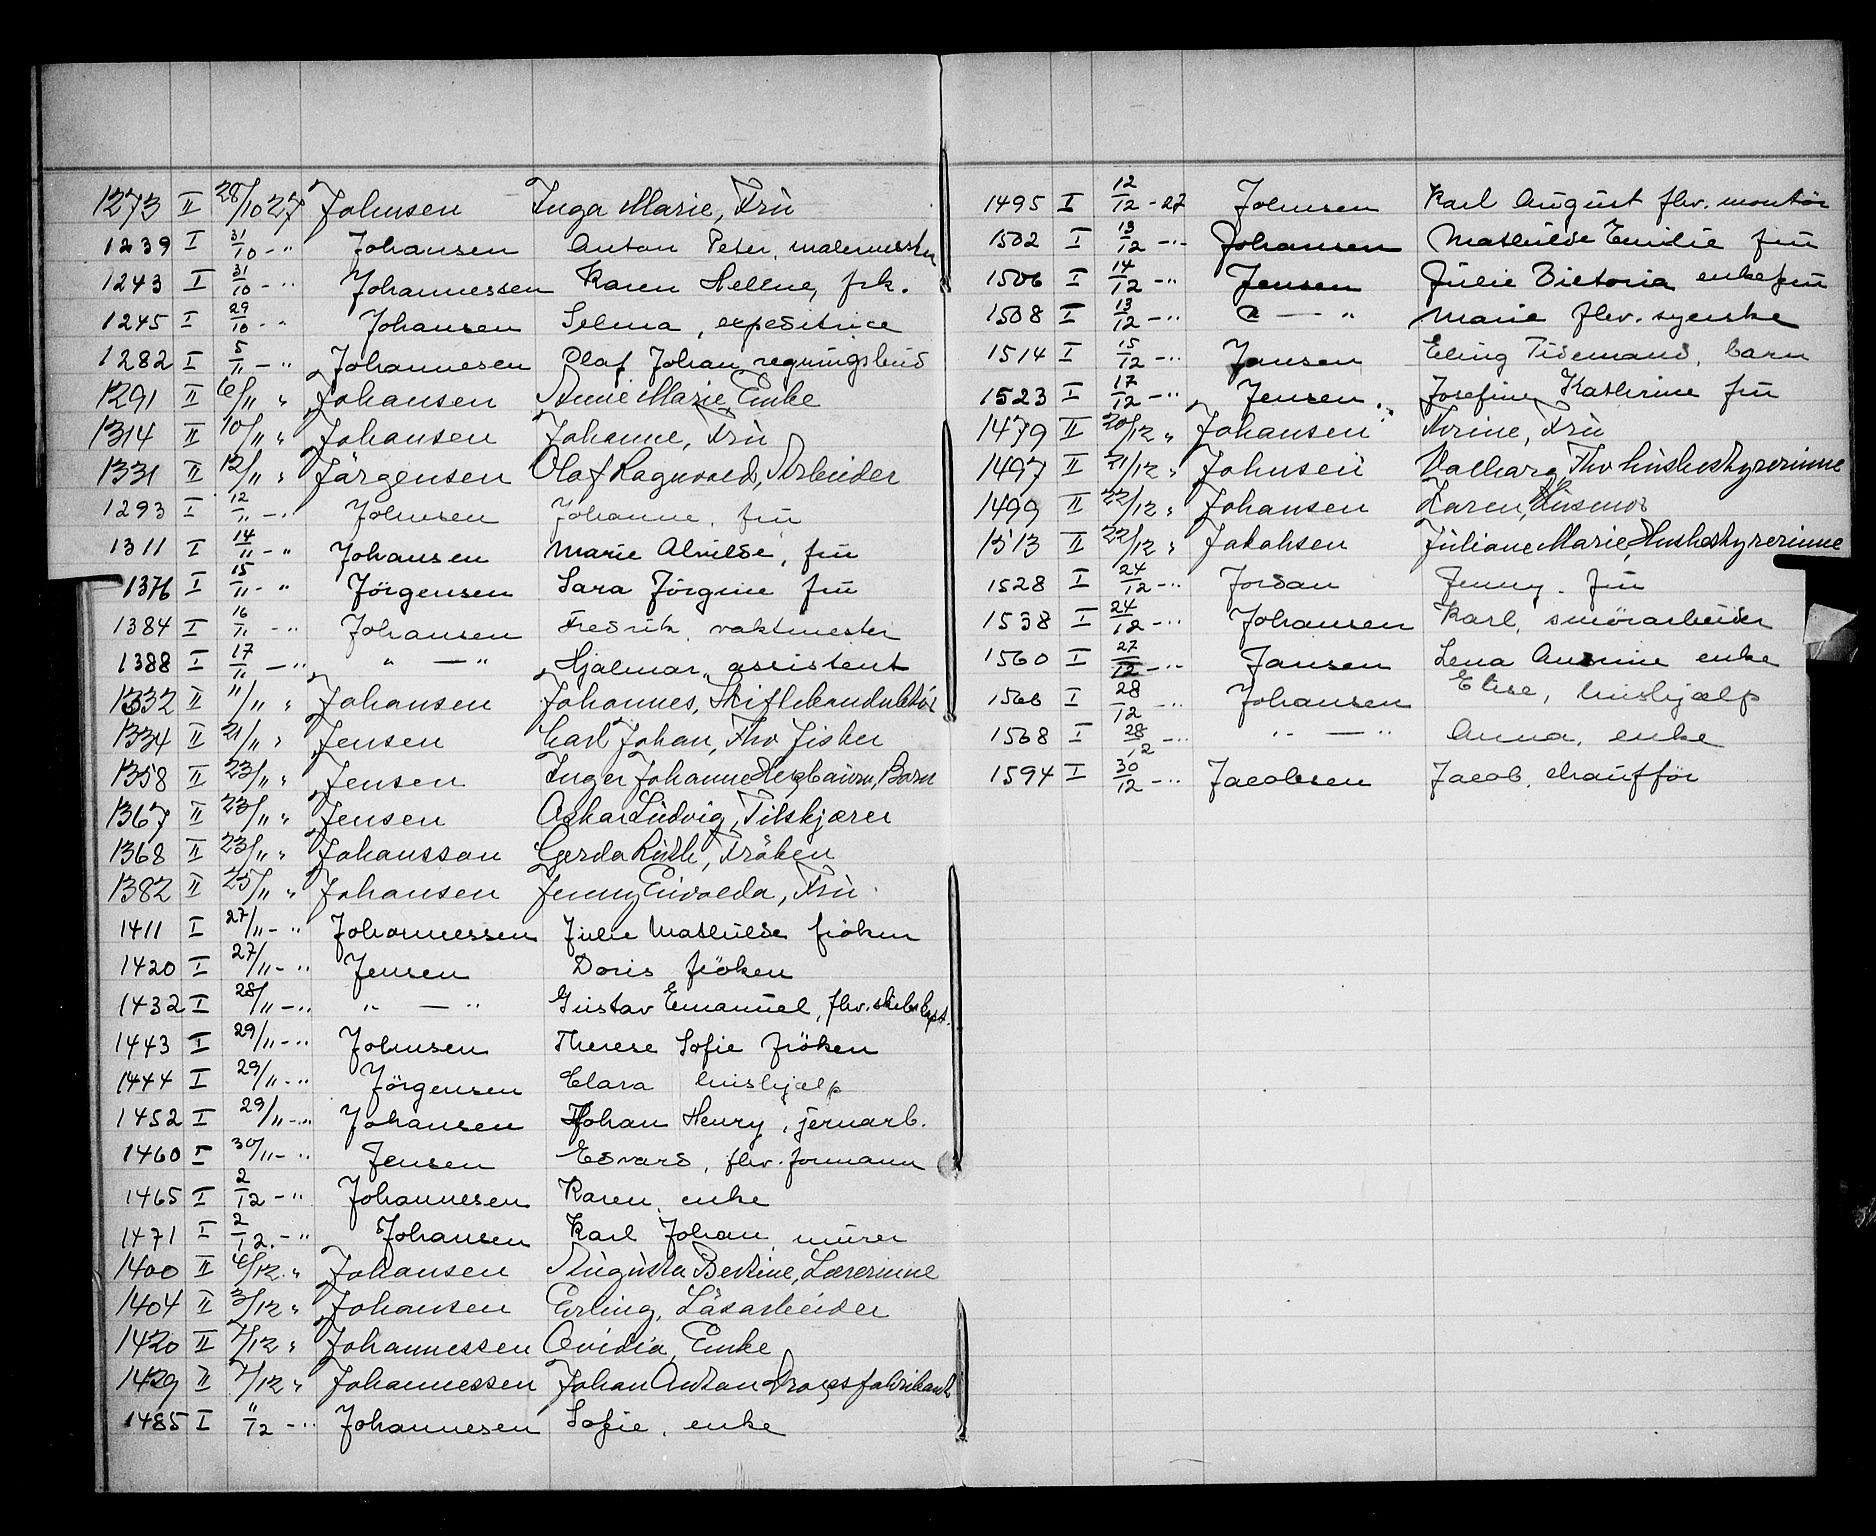 1273 II 28/10 27 Johnsen Inga Marie, Frù
1239 I 31/10 - " Johansen Anton Peter, malermester
1243 I 31/10 - " Johannessen Karen Hellne, frk.
1245 I 29/10 - " Johansen Selma, expeditrice
1282 I 5/11 - " Johannesen Olaf Johan regningsbud
1291 II 6/11 " Johansen Anne Marie, Enke
1314 II 10/11 " Johansen Johanne, Frù
1331 II 12/11 " Jörgensen Olaf Ragnvald, Arbeider
1293 I 12/11 - " Johnsen Johanne, frù
1311 I 14/11 - " Johansen Marie Alvilde, frù
1376 I 15/11 - " Jörgensen Sara Jörgine frù
1384 I 16/11 - " Johansen Fredrik, vaktmester
1388 I 17/11 - " " — " Hjalmar, assistent
1332 II 11/11 " Johansen Johannes, Skiftekonduktör
1334 II 21/11 " Jensen Carl Johan, Fhv Fisker
1358 II 23/11 " Jensen Inger Johanne Bergbaum, Barn
1367 II 23/11 " Jensen Oskar Lùdvig, Tilskjærer
1368 II 23/11 " Johansson Gerda Rùth, Fröken
1382 II 25/11 " Johansen Jenny Eivolda, Frù
1411 I 27/11 - " Johannessen Julie Mathilde fröken
1420 I 27/11 - " Jensen Doris fröken
1432 I 28/11 - " " — " Gustav Emanuel, fhv. skibskapt.
1443 I 29/11 - " Johnsen Therese Sofie fröken
1444 I 29/11 - " Jörgensen Clara hùshjælp
1452 I 29/11 - " Johansen Johan Henry, jernarb.
1460 I 30/11 - " Jensen Edvard, fhv. formann
1465 I 2/12 - " Johannesen Karen, enke
1471 I 2/12 - " Johansen Karl Johan, mùrer
1400 II 6/12 " Johansen Augusta Bertine, Lærerinne
1404 II 3/12 " Johansen Erling, Låsarbeider
1420 II 7/12 " Johannessen Ovidia, Enke
1429 II 7/12 " Johannessen Johan Anton Dropsfabrikant
1485 I 11/12 - " Johannesen Sofie, enke
1495 I 12/12 - 27 Johnsen Karl Aùgùst fhv. montör
1502 I 13/12 - " Johansen Mathilde Emilie frù
1506 I 14/12 - " Jensen Jùlie Victoria enkefrù
1508 I 13/12 - " " — " Marie fhv. syerske
1514 I 15/12 - " Jansen Eling Tidemand, barn
1523 I 17/12 - " Jensen Josefine Kathrine frù
1479 II 20/12 " Johansen Thrine, Frù
1497 II 21/12 " Johnsen Valborg, Fhv hùsbestyrerinne
1499 II 22/12 " Johansen Karen, Hùsmor
1513 II 22/12 " Jakobsen Jùliane Marie, Husbestyrerinne
1528 I 24/12 - " Jordan Jenny, frù
1538 I 24/12 - " Johansen Karl, smörarbeider
1560 I 27/12 - " Jansen Lena enke
1566 I 28/12 - " Johansen Elise, hùshjælp
1568 I 28/12 - " " — " Anna, enke
1594 I 30/12 - " Jacobsen Jacob, chaufför